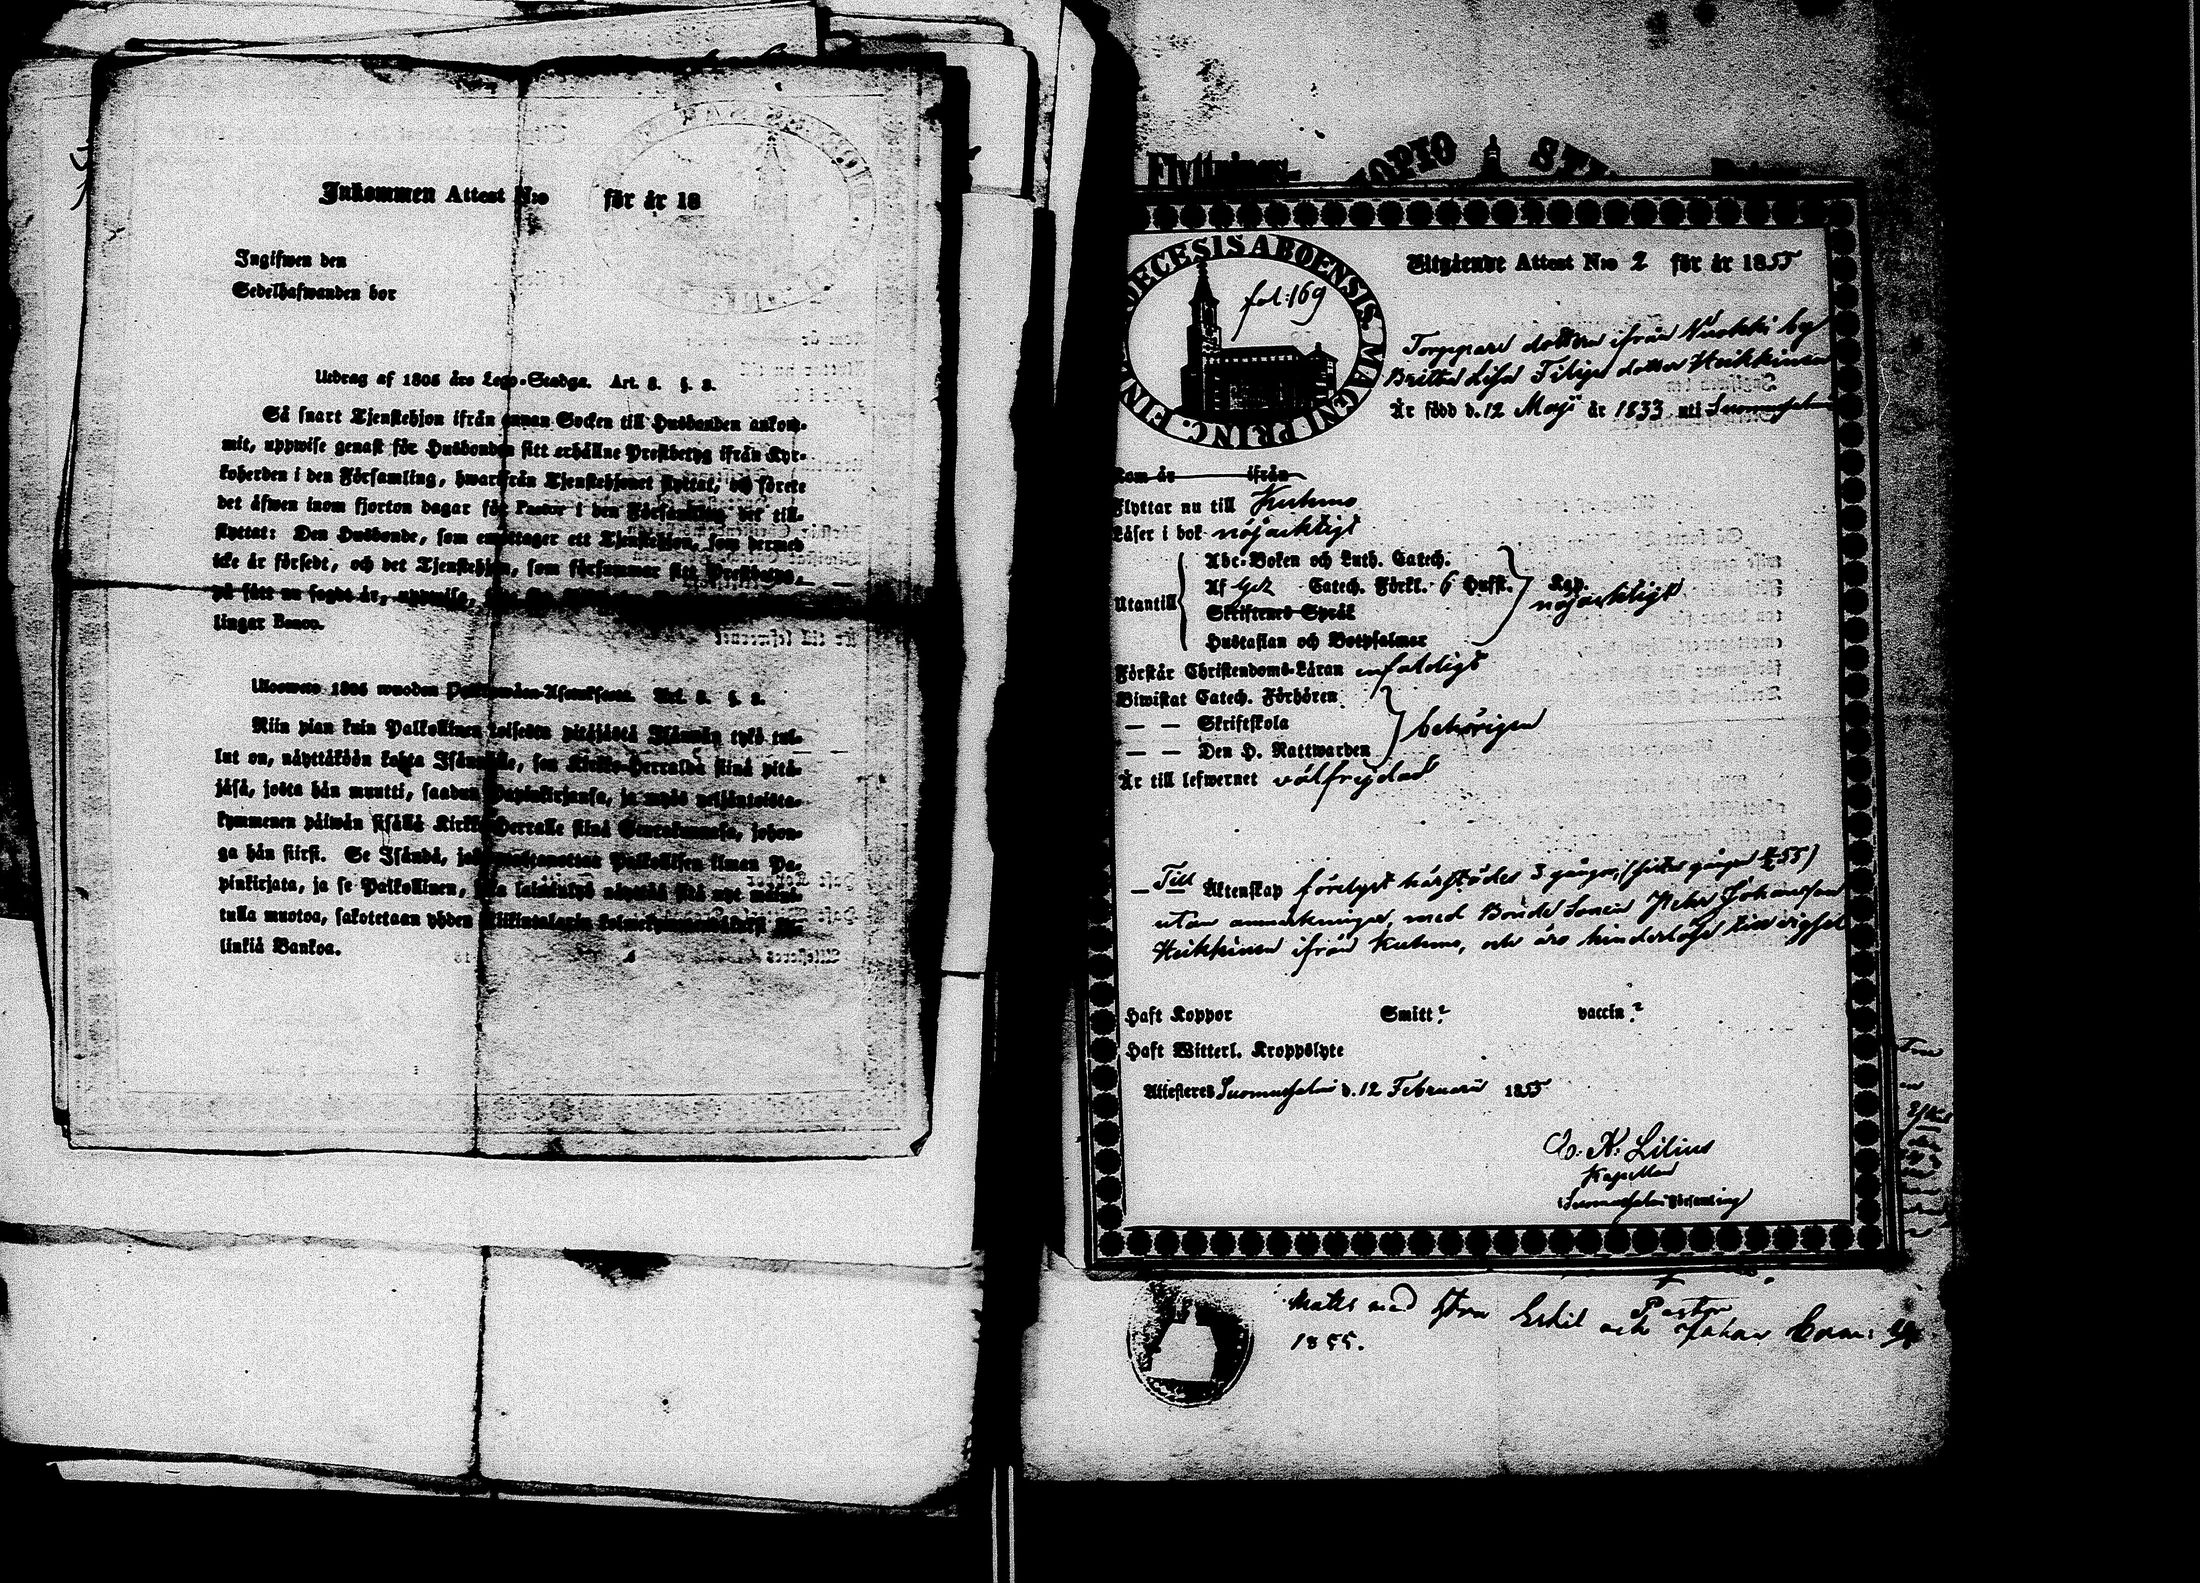 Inkommen Attest N:o för år 18
Ingifwen den
Sedelhafwanden bor
Utdrag af 1805 års Lego-Stadga. Art. 8. §. 2.
Så snart Tjenstehjon ifrån annan Socken till Husbonden ankom-
mit, uppwise genast för Husbonden sitt erhållne Prestbetyg ifrån Kyr-
koherden i den Församling, hwarifrån Tjenstehjonet flyttat, och förete
det äfwen inom fjorton dagar för Pastor i den Församling det till-
flyttat: Den Husbonde, som emottager ett Tjenstehjon, som dermed
icke är försedt, och det Tjenstehjon, som försummar sitt Prestbetyg,
på sätt nu sagdt är, uppwisa,
lingar Banco.
Ulosweto 1805 wuoden Art. 8. §. 2.
Niin pian kuin Palkollinen toisesta pitäjästä Isännän tykö tul-
lut on, näyttäköön kohta Isännälle, sen Kirkko-Herralda siinä pitä-
jäsä, josta hän muutti, saadun Papinkirjansa, ja myös neljäntoista-
kymmenen päiwän sisällä Kirkko-Herralle siinä Seurakunnasa, johon-
ga hän siirsi. Se Isändä, Palkollisen ilman Pa-
pinkirjata, ja se Palkollinen, näyttää sitä nyt määrä-
tulla muotoa, sakotetaan yhden
linkiä Bankoa.
Flyttnings-
OPIO ST
DIOECESIS ABOENSIS. MAGNI PRINC. FIN
fol:169
Utgående Attest N:o 2 för år 1855
Torppare dottren ifrån Vuokki by
Britha Lisa Filips dotter Heikkinen
Är född d. 12 Maji år 1833 uti Suomusjalmi
Kom år ifrån
Flyttar nu till Kuhmo
Läser i bok nöjachtigt
Utantill
Abc-Boken och Luth. Catech.
Af Catech. Förkl. 6 Hufst. Kap.
nöjachtigt
Skriftenes Språk
Hustaflan och Botpsalmer
Förstår Christendoms-Läran enfaldigt
Biwistat Catech. Förhören
— — Skriftskola behörigen
— — Den H. Nattwarden
Är till lefwernet välfrejdad
— Till Äktenskap förelyst härstädes 3 gånger, (sista gången 55)
utan anmärkningar, med Bonde Sonen Pehr Johansson
Heikkinen ifrån Kuhmo, och äro hinderlöse till vigsel
Haft Koppor Smitt? vaccin?
Haft Witterl. Kroppslyte
Attesteres Suomusjalmi d. 12 Februarii 1855
K: Lilius
Kapellan
i Suomusjalmi Församling
med Eskil Pastor
och Johan
1855.